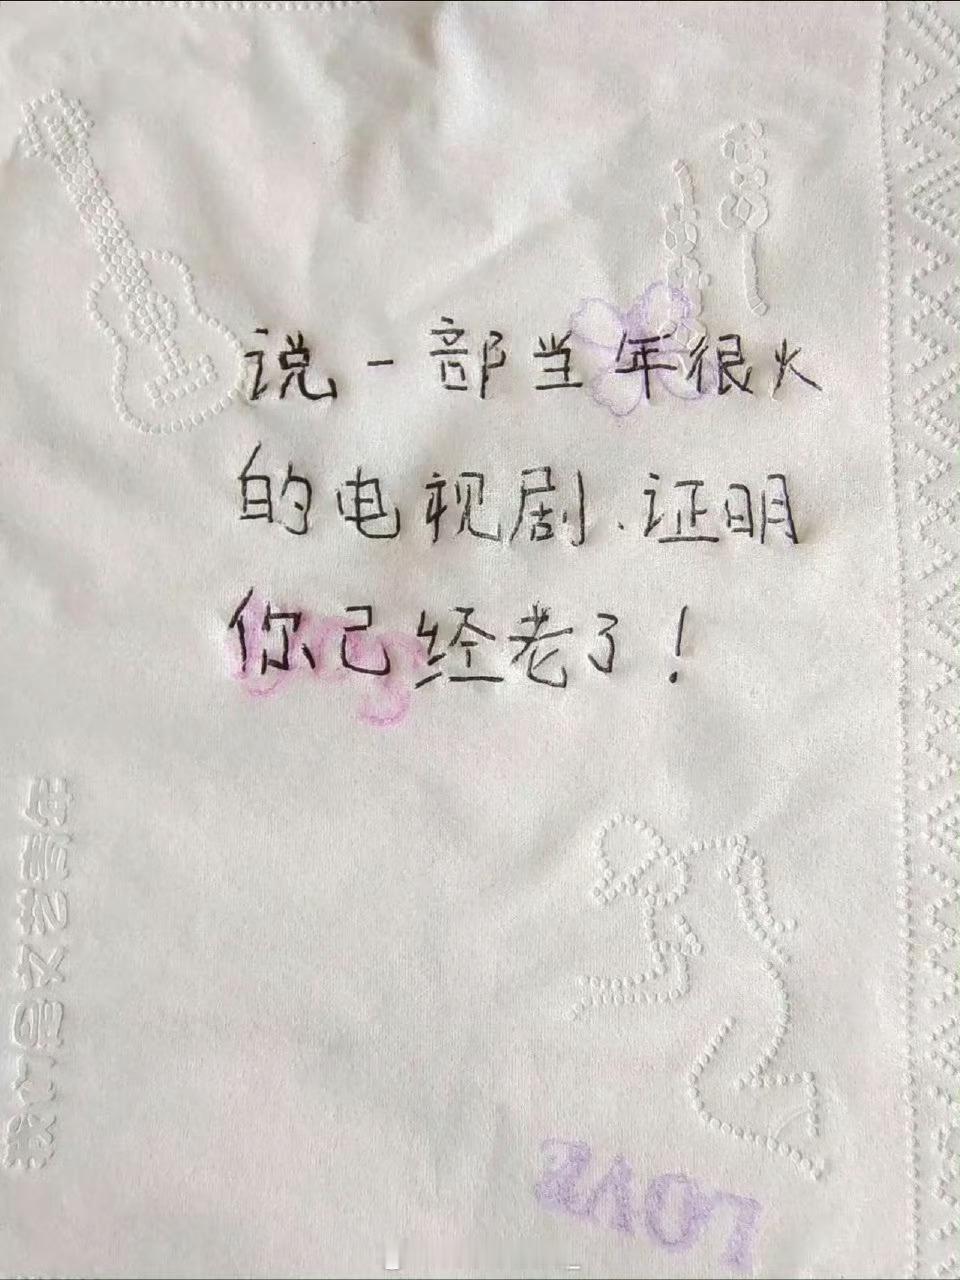 说一部当年很火
的电视剧.证明
你已经老了!
LOVE